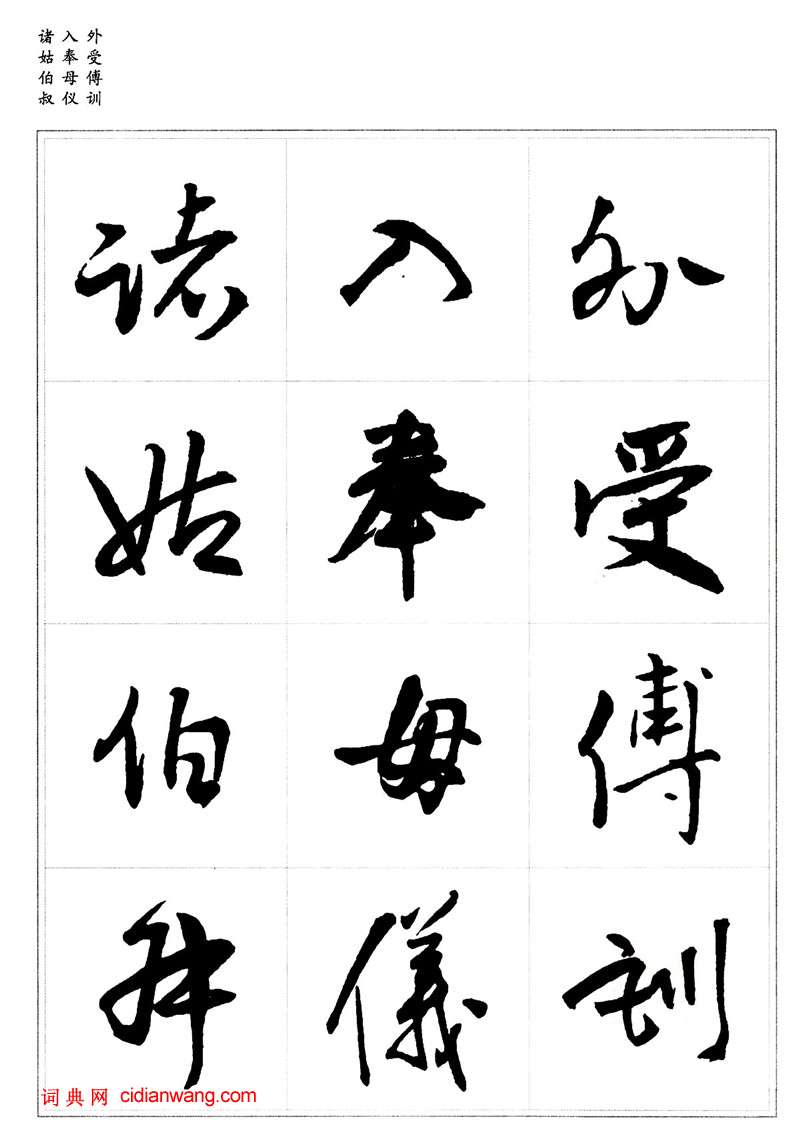 外受傅训
入奉母仪
诸姑伯叔
外受傅訓
入奉母儀
諸姑伯叔
词典网 cidianwang.com